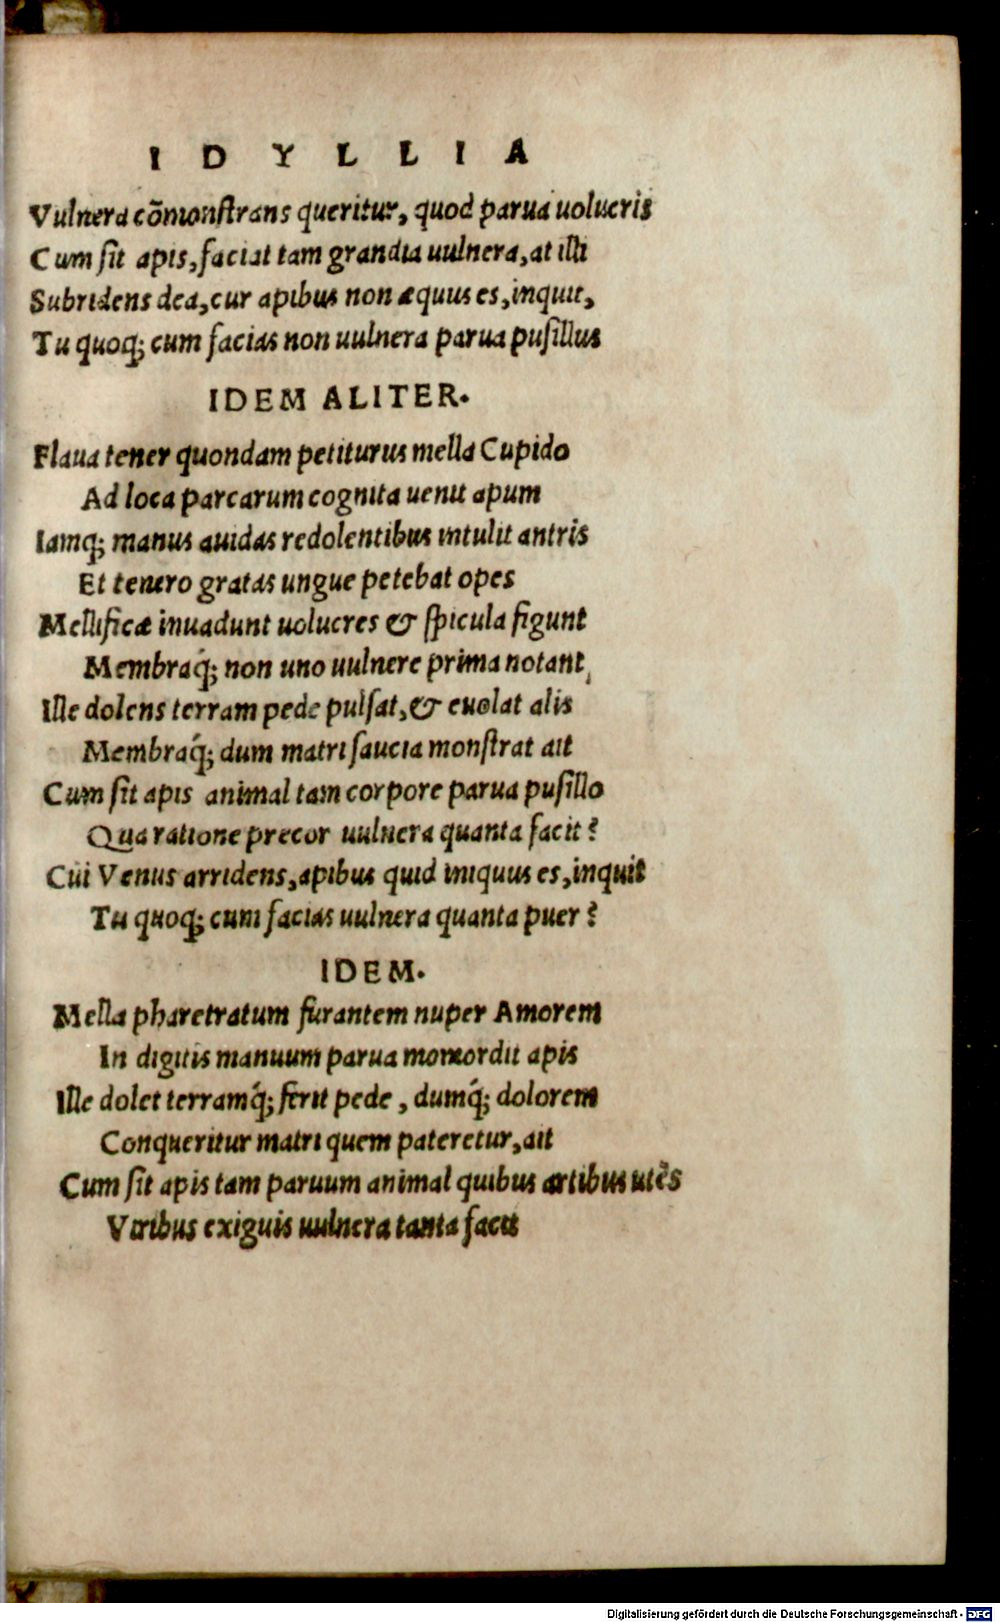 IDYLLIA
Vulnera cõmonstrans queritur, quod parua uolucris
Cum sit apis, faciat tam grandia uulnera, at illi
Subridens dea, cur apibus non æquus es, inquit,
Tu quoq; cum facias non uulnera parua pusillus
IDEM ALITER.
Flaua tener quondam petiturus mella Cupido
Ad loca parcarum cognita uenit apum
Iamq; manus auidas redolentibus intulit antris
Et tenero gratas ungue petebat opes
Mellificæ inuadunt uolucres & spicula figunt
Membraq́; non uno uulnere prima notant,
Ille dolens terram pede pulsat, & euolat alis
Membraq́; dum matri saucia monstrat ait
Cum sit apis animal tam corpore parua pusillo
Qua ratione precor uulnera quanta facit?
Cui Venus arridens, apibus quid iniquus es, inquit
Tu quoq; cum facias uulnera quanta puer?
IDEM.
Mella pharetratum furantem nuper Amorem
In digitis manuum parua momordit apis
Ille dolet terramq́; ferit pede, dumq́; dolorem
Conqueritur matri quem pateretur, ait
Cum sit apis tam paruum animal quibus artibus utẽs
Viribus exiguis uulnera tanta facit
Digitalisierung gefördert durch die Deutsche Forschungsgemeinschaft - DFG